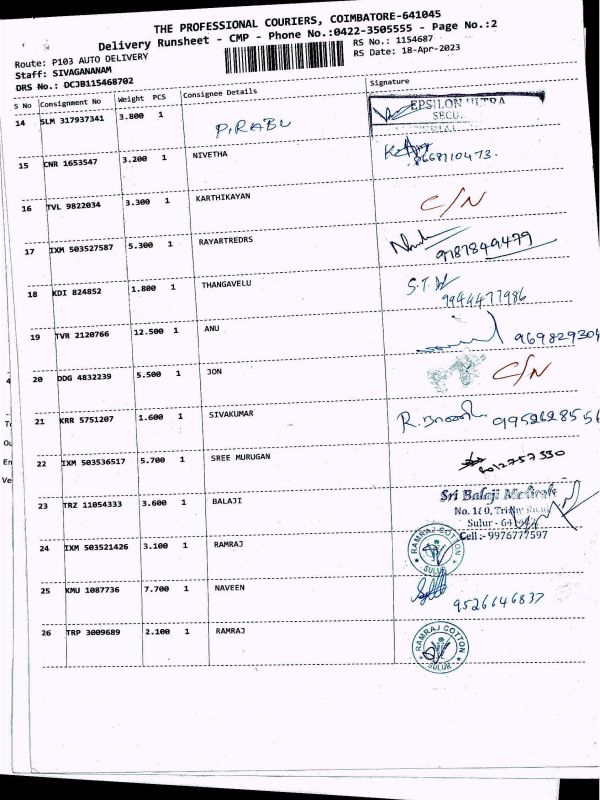 THE PROFESSIONAL COURIERS, COIMBATORE-641045
Delivery Runsheet - CMP - Phone No.:0422-3505555 - Page No.:2
Route: P103 AUTO DELIVERY
RS No.: 1154687
Staff: SIVAGANANAM
RS Date: 18-Apr-2023
DRS No.: DCJB115468702
S No Consignment No Weight PCS Consignee Details Signature
14 SLM 317937341 3.800 1 PIRABU EPSILON ULTRA
SECU
15 CNR 1653547 3.200 1 NIVETHA 8668710473.
16 TVL 9822034 3.300 1 KARTHIKAYAN C/N
17 IXM 503527587 5.300 1 RAYARTREDRS 9787849479
18 KDI 824852 1.800 1 THANGAVELU S.T.
9944477986
19 TVR 2120766 12.500 1 ANU 969829304
20 DDG 4832239 5.500 1 JON C/N
21 KRR 5751207 1.600 1 SIVAKUMAR R. 9952628556
22 IXM 503536517 5.700 1 SREE MURUGAN
23 TRZ 11054333 3.600 1 BALAJI Sri Balaji
No. 180, Trichy Road
Sulur -
Cell :- 9976777597
24 IXM 503521426 3.100 1 RAMRAJ RAMRAJ COTTON
SULUR
25 KMU 1087736 7.700 1 NAVEEN 9526646837
26 TRP 3009689 2.100 1 RAMRAJ RAMRAJ COTTON
SULUR